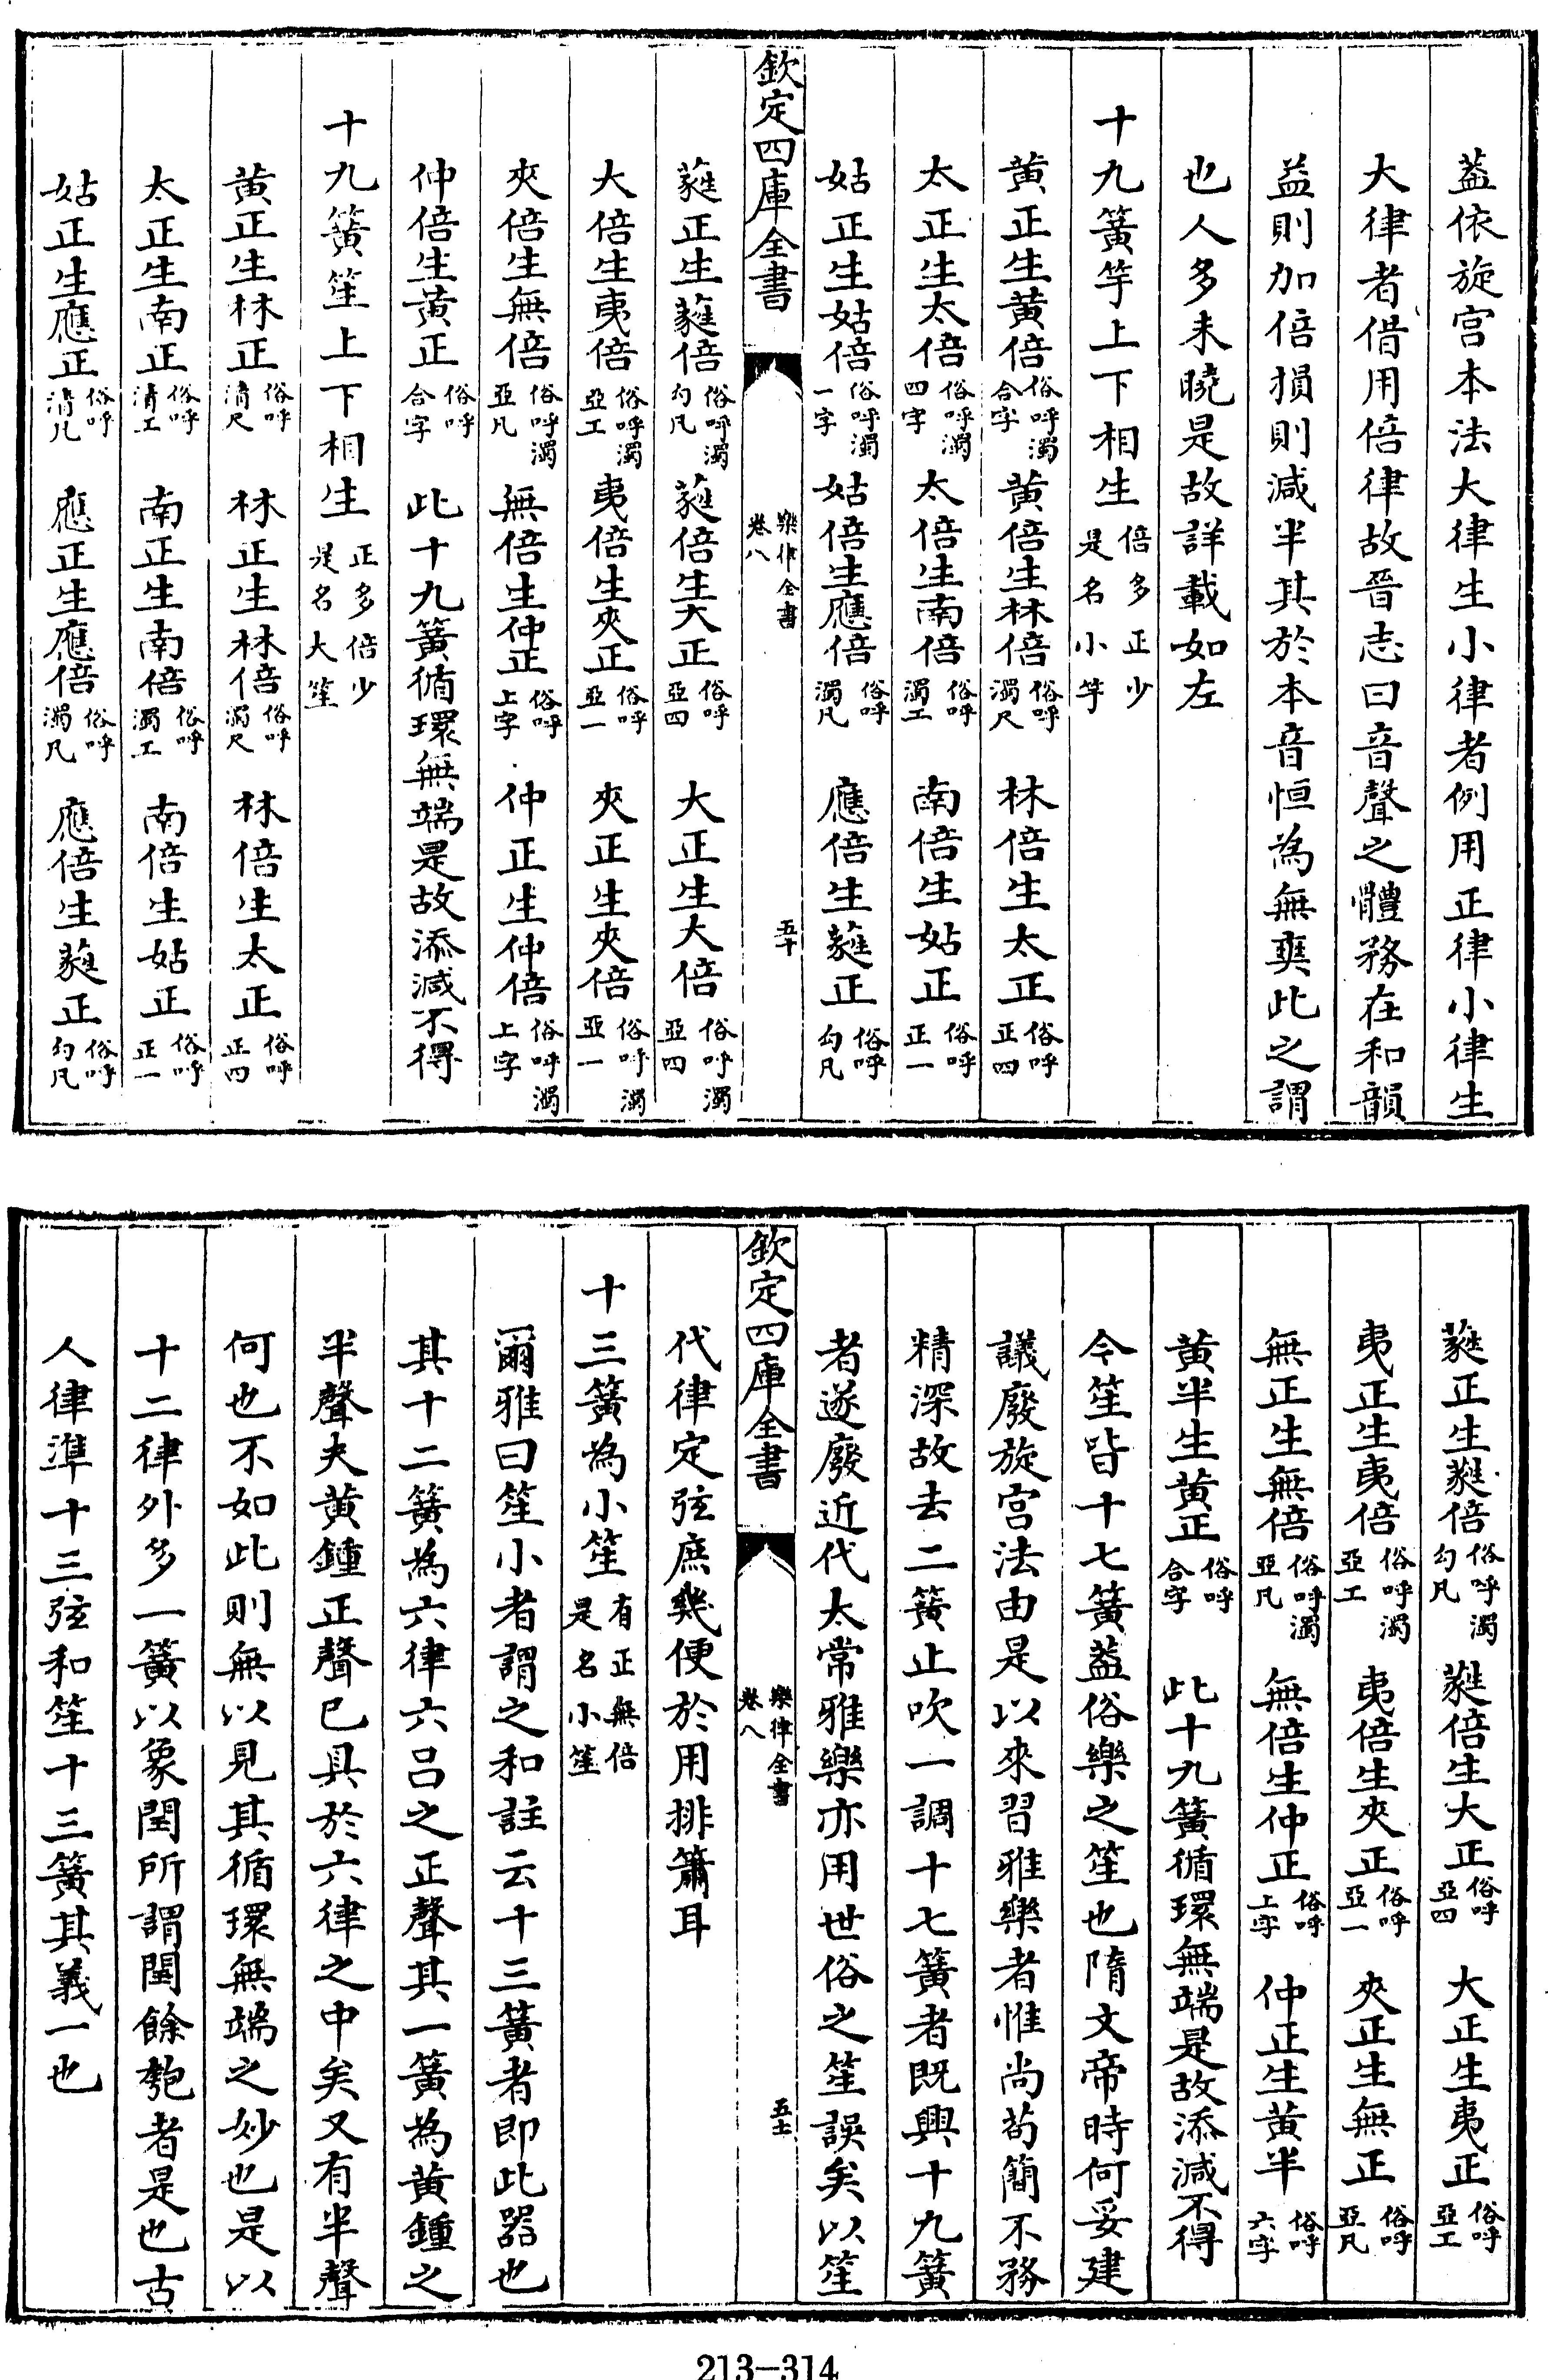 葢依旋宫本法大律生小律者例用正律小律生
大律者借用倍律故晉志曰音聲之體務在和韻
益則加倍損則減半其於本音恒為無爽此之謂
也人多未曉是故詳載如左
十九簧竽上下相生倍多正少是名小竽
黄正生黄倍俗呼濁合字　黄倍生林倍俗呼濁尺　林倍生太正俗呼正四
太正生太倍俗呼濁四字　太倍生南倍俗呼濁工　南倍生姑正俗呼正一
姑正生姑倍俗呼濁一字　姑倍生應倍俗呼濁凡　應倍生蕤正俗呼勾凡
欽定四庫全書　樂律全書卷八　五十
蕤正生蕤倍俗呼濁勾凡　蕤倍生大正俗呼亞四　大正生大倍俗呼濁亞四
大倍生夷倍俗呼濁亞工　夷倍生夾正俗呼亞一　夾正生夾倍俗呼濁亞一
夾倍生無倍俗呼濁亞凡　無倍生仲正俗呼上字　仲正生仲倍俗呼濁上字
仲倍生黄正俗呼合字　此十九簧循環無端是故添減不得
十九簧笙上下相生正多倍少是名大笙
黄正生林正俗呼清尺　林正生林倍俗呼濁尺　林倍生太正俗呼正四
太正生南正俗呼清工　南正生南倍俗呼濁工　南倍生姑正俗呼正一
姑正生應正俗呼清凡　應正生應倍俗呼濁凡　應倍生蕤正俗呼勾凡
蕤正生蕤倍俗呼濁勾凡　蕤倍生大正俗呼亞四　大正生夷正俗呼亞工
夷正生夷倍俗呼濁亞工　夷倍生夾正俗呼亞一　夾正生無正俗呼亞凡
無正生無倍俗呼濁亞凡　無倍生仲正俗呼上字　仲正生黄半俗呼六字
黄半生黄正俗呼合字　此十九簧循環無端是故添減不得
今笙皆十七簧葢俗樂之笙也隋文帝時何妥建
議廢旋宫法由是以來習雅樂者惟尚苟簡不務
精深故去二簧止吹一調十七簧者既興十九簧
者遂廢近代太常雅樂亦用世俗之笙誤矣以笙
欽定四庫全書　樂律全書卷八　五十一
代律定弦庶幾便於用排簫耳
十三簧為小笙有正無倍是名小笙
爾雅曰笙小者謂之和註云十三簧者即此器也
其十二簧為六律六吕之正聲其一簧為黄鍾之
半聲夫黄鍾正聲已具於六律之中矣又有半聲
何也不如此則無以見其循環無端之妙也是以
十二律外多一簧以象閏所謂閏餘匏者是也古
人律準十三弦和笙十三簧其義一也
213-314